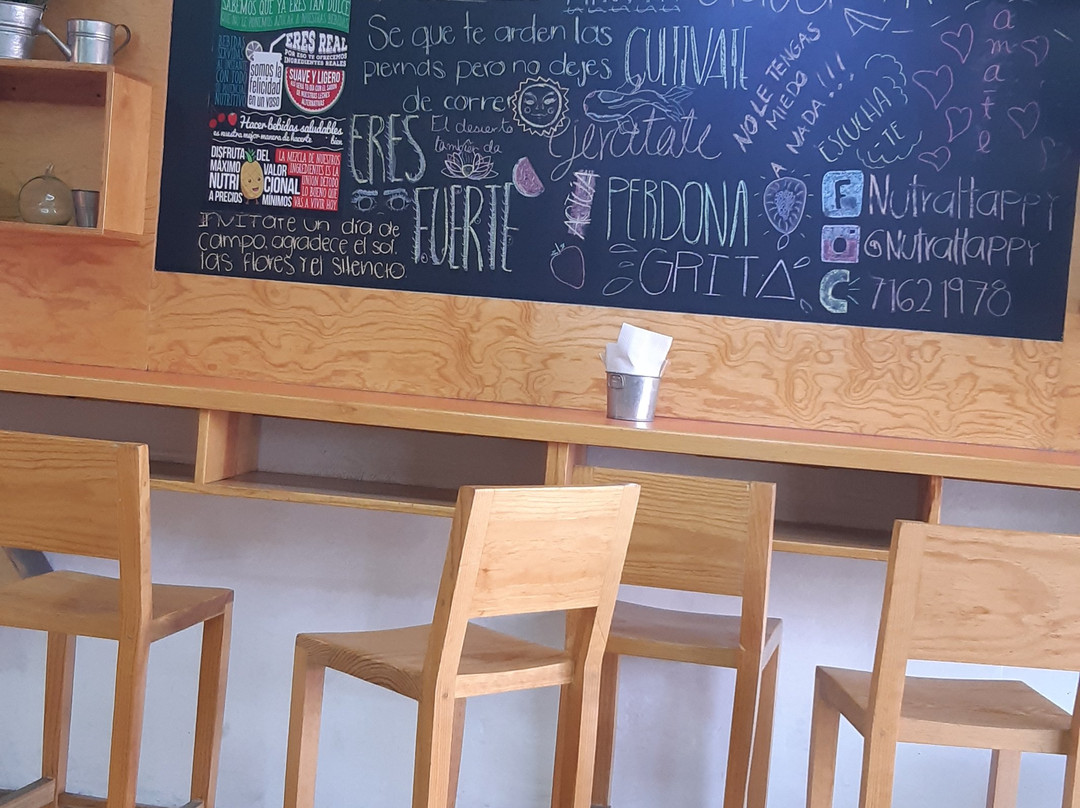 SABEMOS QUE YA ERES TAN DULCE
ERES REAL
POR ESO TE OFRECEMOS
INGREDIENTES REALES
somos la
felicidad
en un vaso
SUAVE Y LIGERO
Hacer bebidas saludables
es nuestra mejor manera de hacerte bien
DISFRUTA DEL
MÁXIMO VALOR
NUTRICIONAL
A PRECIOS MÍNIMOS
LA MEZCLA DE NUESTROS
INGREDIENTES ES LA
VAS A VIVIR HOY
INVITATE UN día de
campo, agradece el sol,
las flores y el silencio.
Se que te arden las
piernas pero no dejes
de correr
CULTIVATE
ERES
El desierto
también da
FUERTE
jeratate
PERDONA
GRITA
NO LE TENGAS
MIEDO
A NADA!!!
ESCUCHA
-TE
amate
F NutraHappy
@NutraHappy
71621978